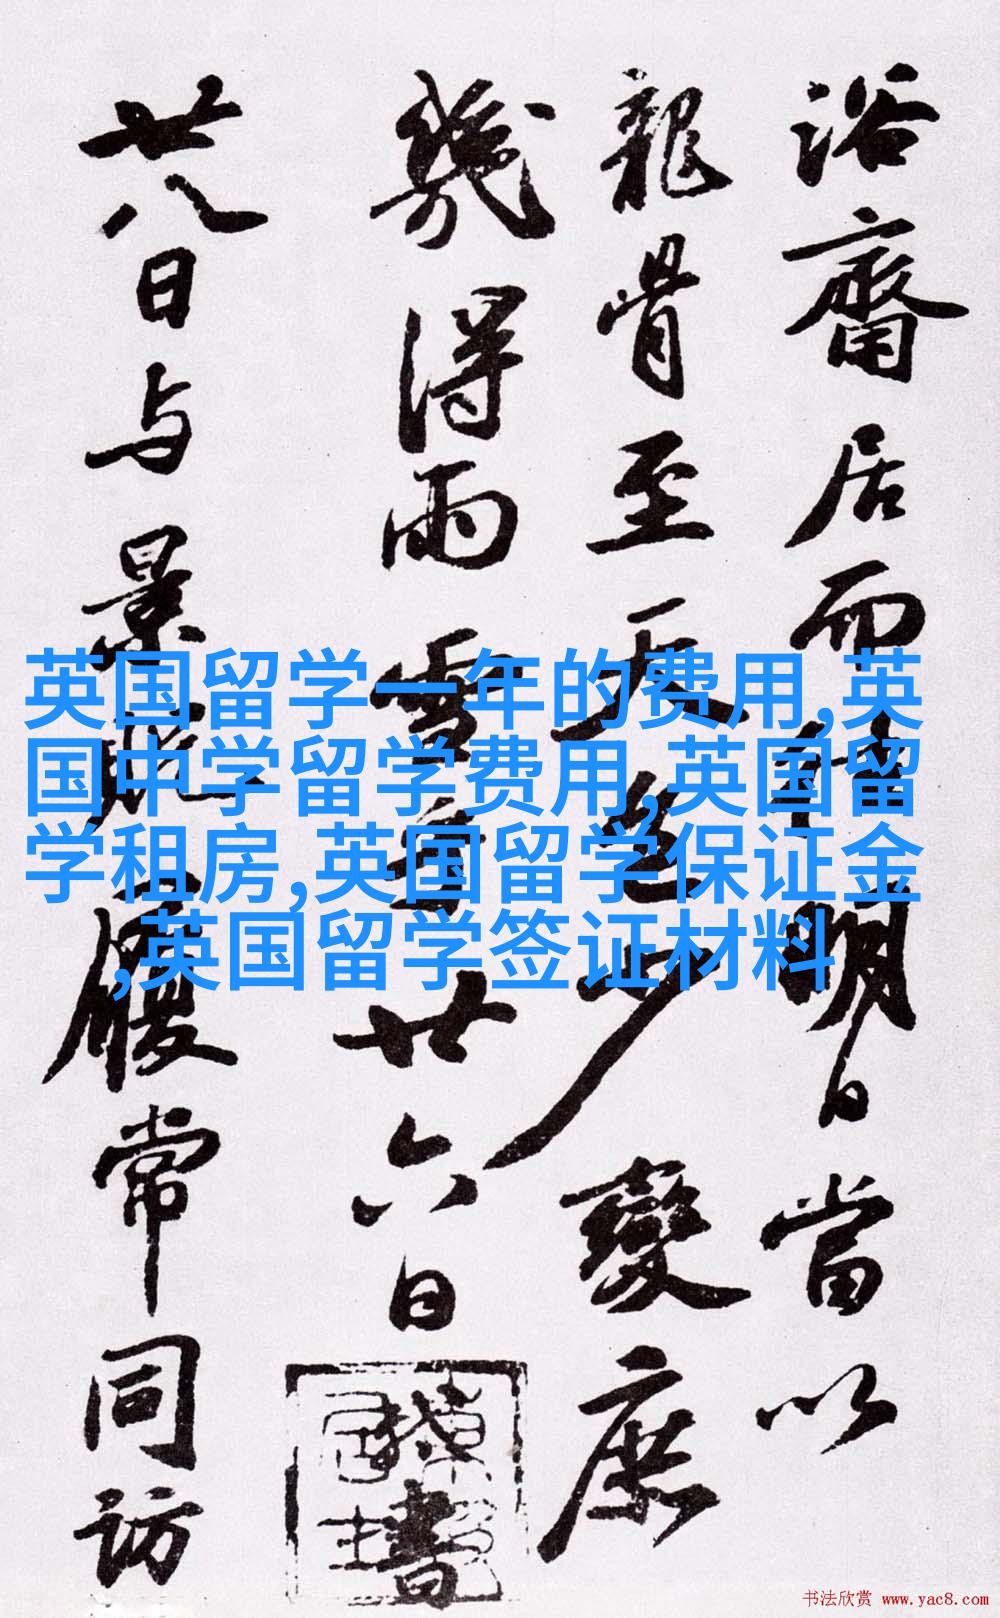 浴齋居而明日當以
龍骨至天色少變庶
幾得雨雪廿六日書
廿八日与景履常同訪
英国留学一年的费用,英
国中学留学费用,英国留
学租房,英国留学保证金
,英国留学签证材料
书法欣赏 www.yac8.com